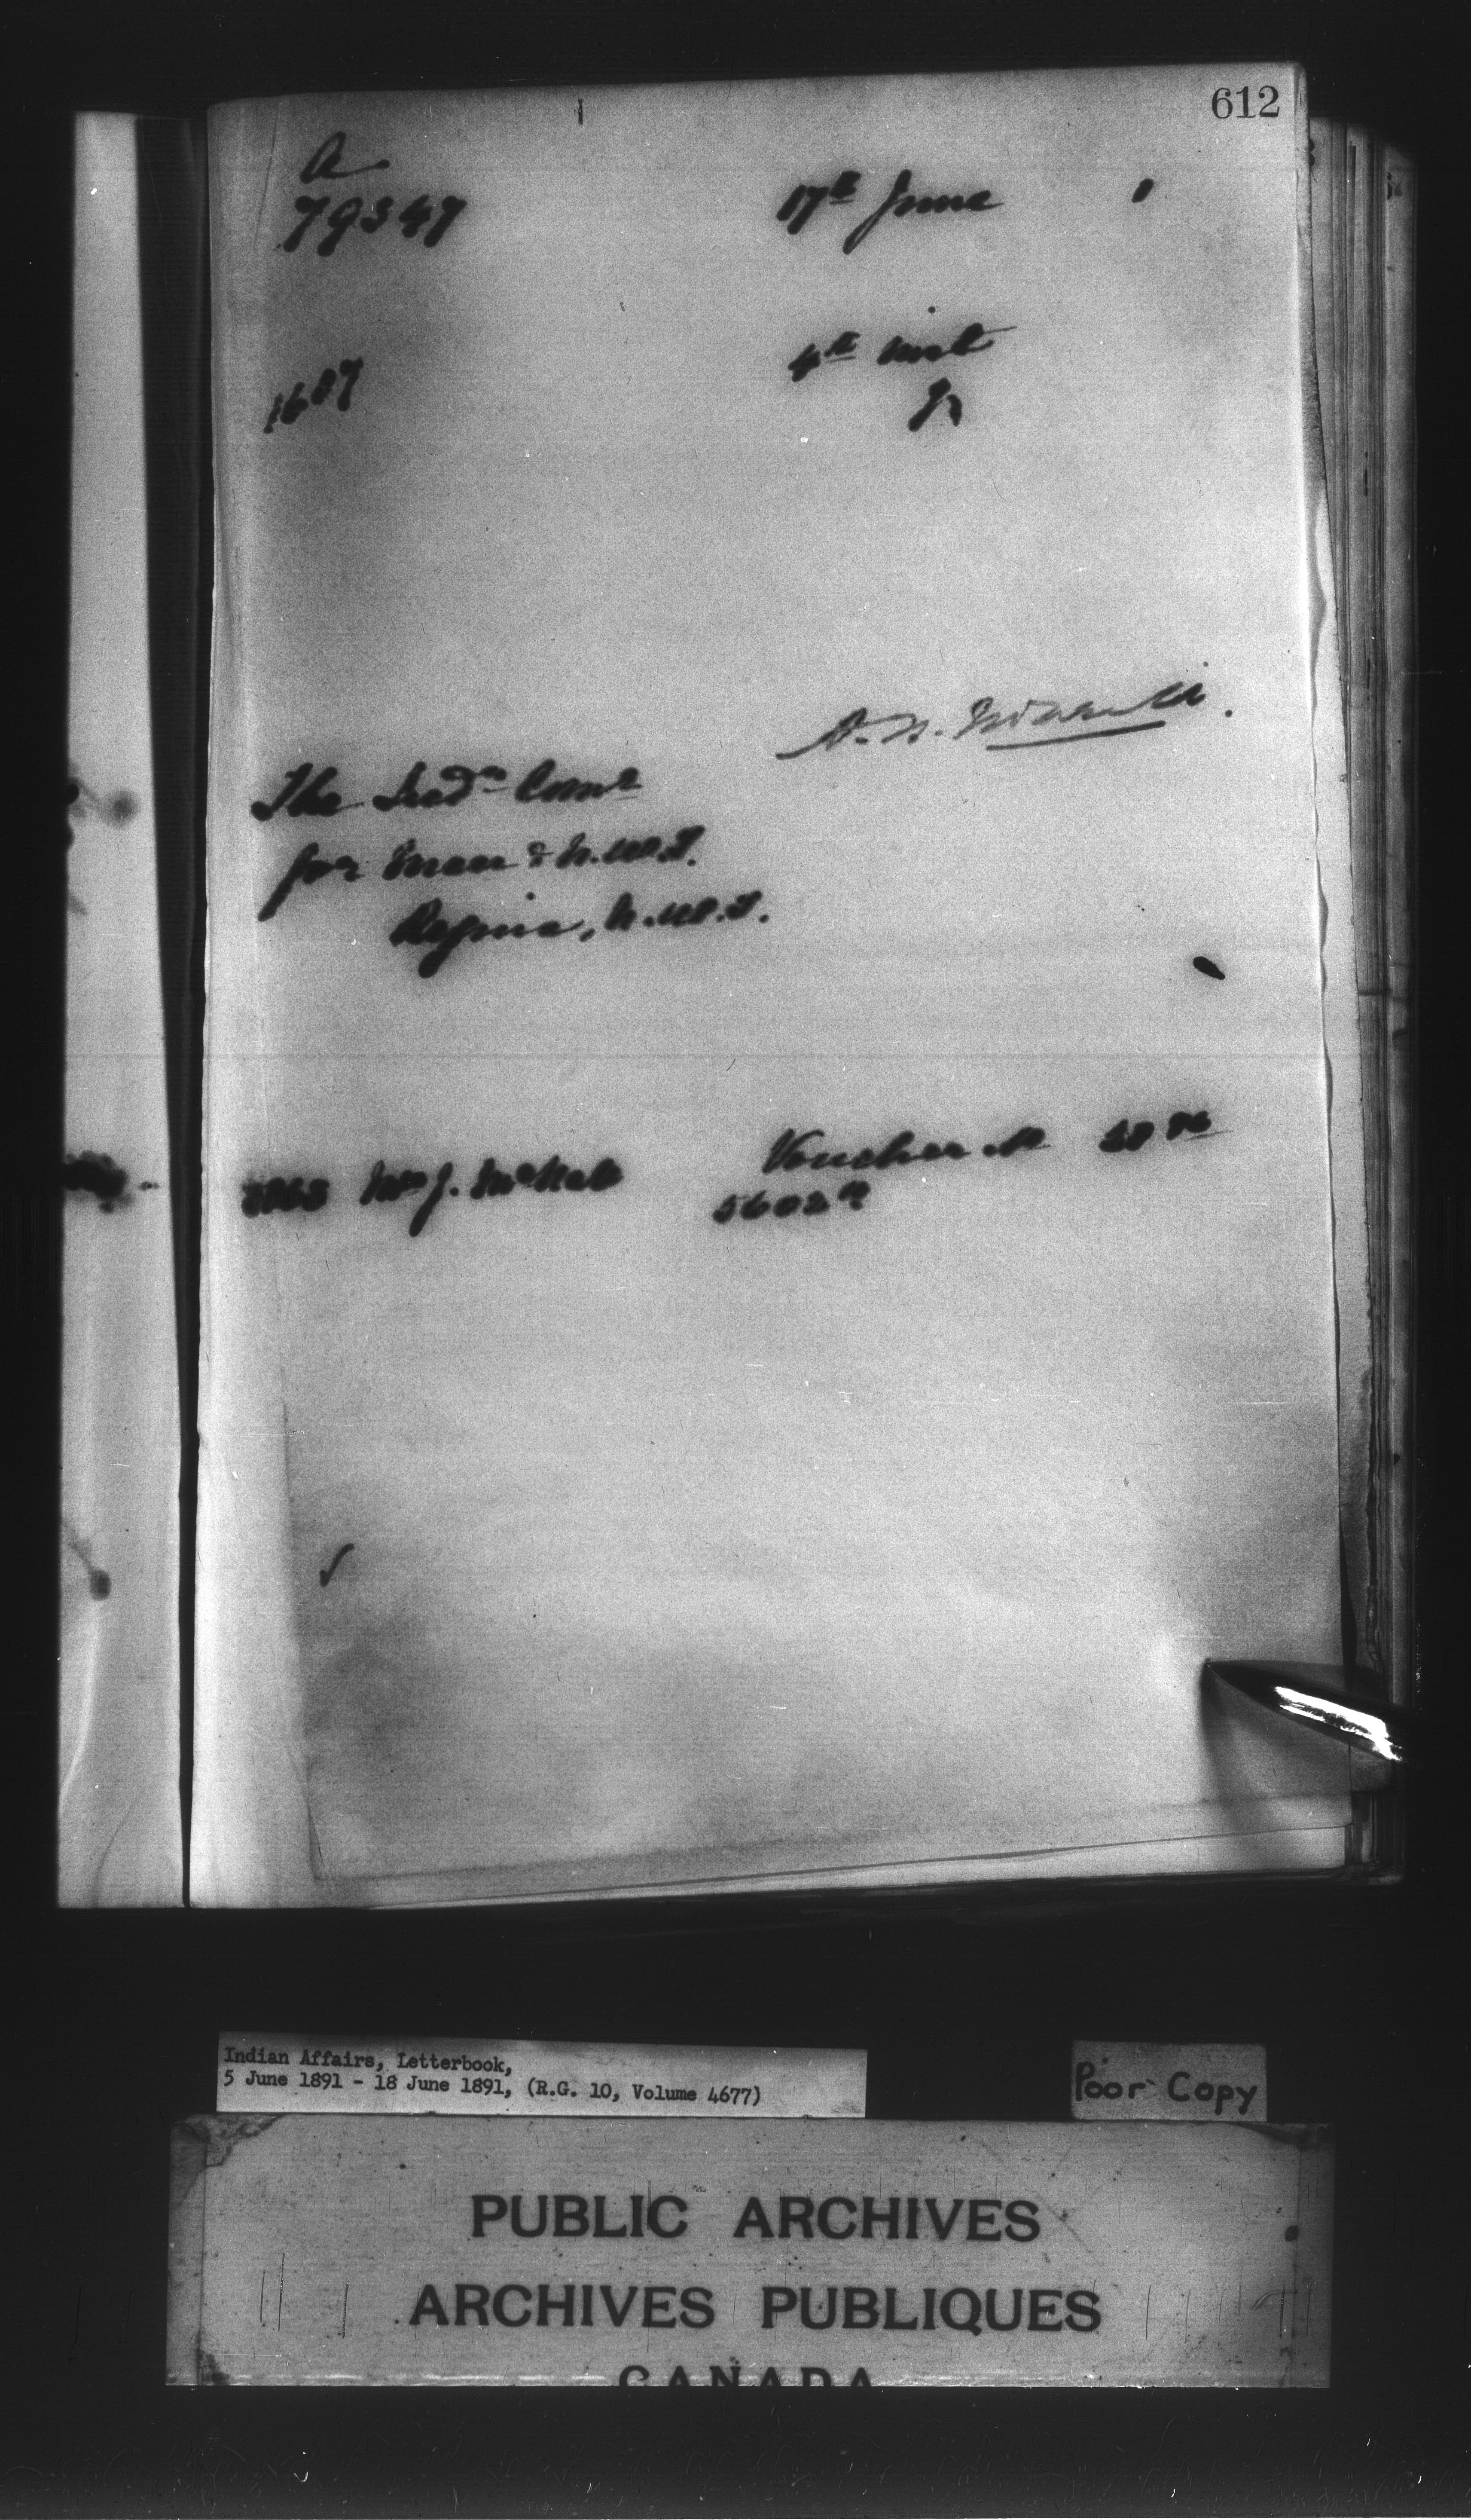 612
A
79347
17th June 1
1687
4th inst
The Indn Comr
for Man & N.W.T.
Regina, N.W.T.
Voucher
Wm J. McNab
5602
Indian Affairs, Letterbook,
5 June 1891 - 18 June 1891, (R.G. 10, Volume 4677)
Poor Copy
PUBLIC ARCHIVES
ARCHIVES PUBLIQUES
CANADA